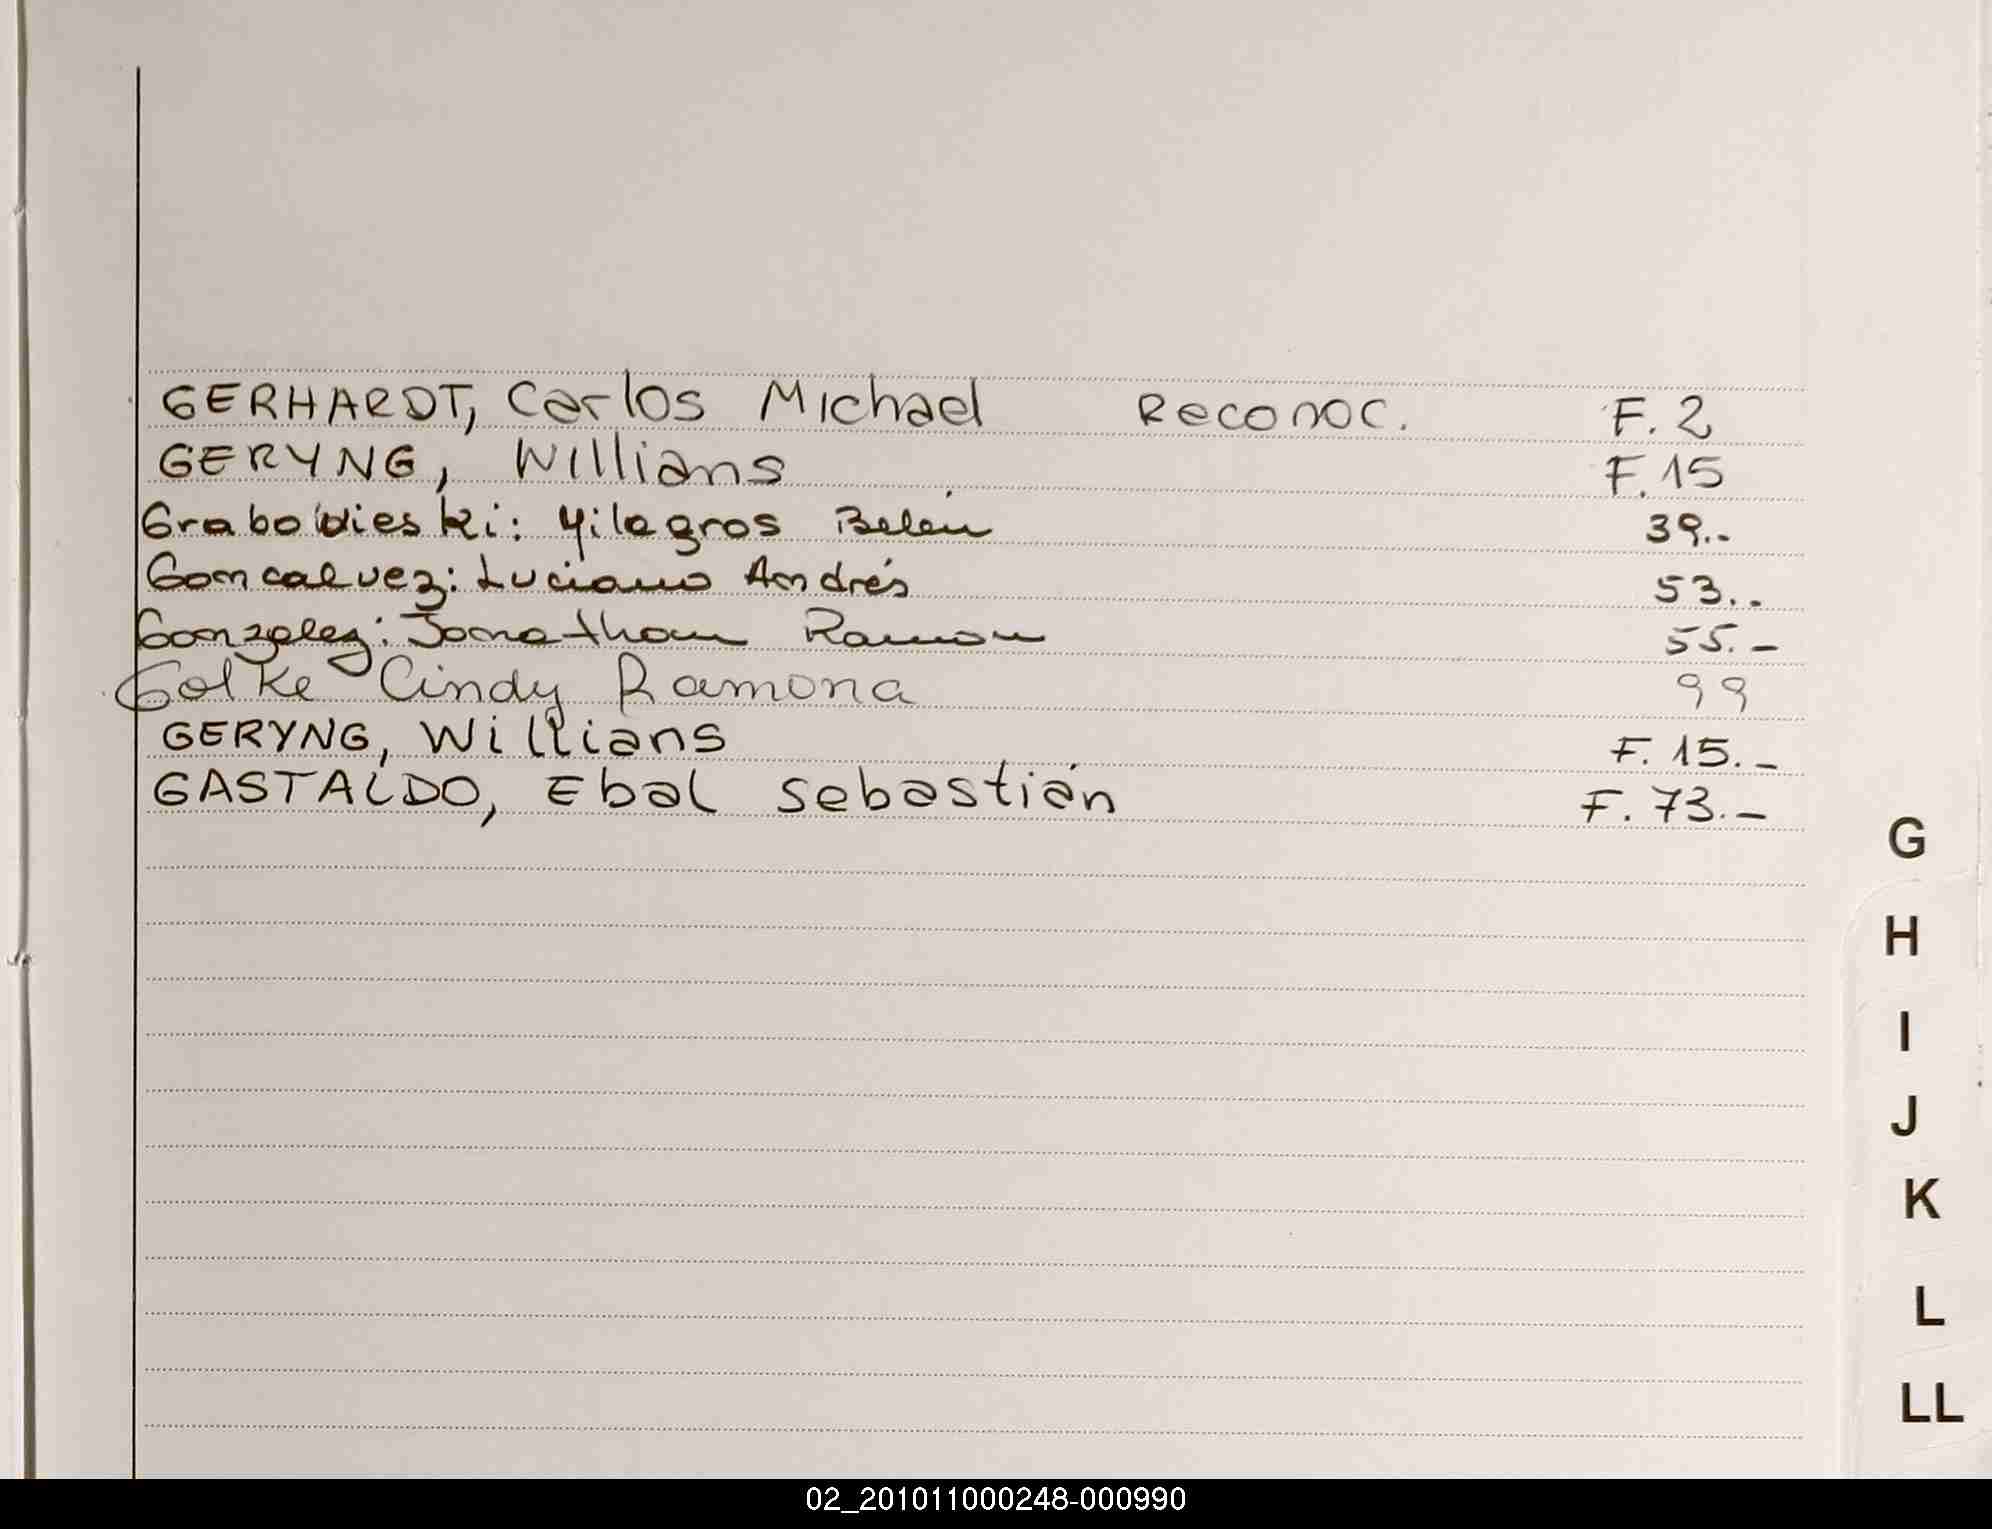 GERHARDT, Carlos Michael Reconoc. F. 2
GERYNG, Willians F. 15
Grabovieski: Milagros Belén 39.-
Goncalvez: Luciano Andrés 53..
Gonzalez: Jonathan Ramon 55.-
Golke Cindy Ramona 99
GERYNG, Willians F. 15.-
GASTALDO, Ebal Sebastián F. 73.-
G
H
I
J
K
L
LL
02_201011000248-000990